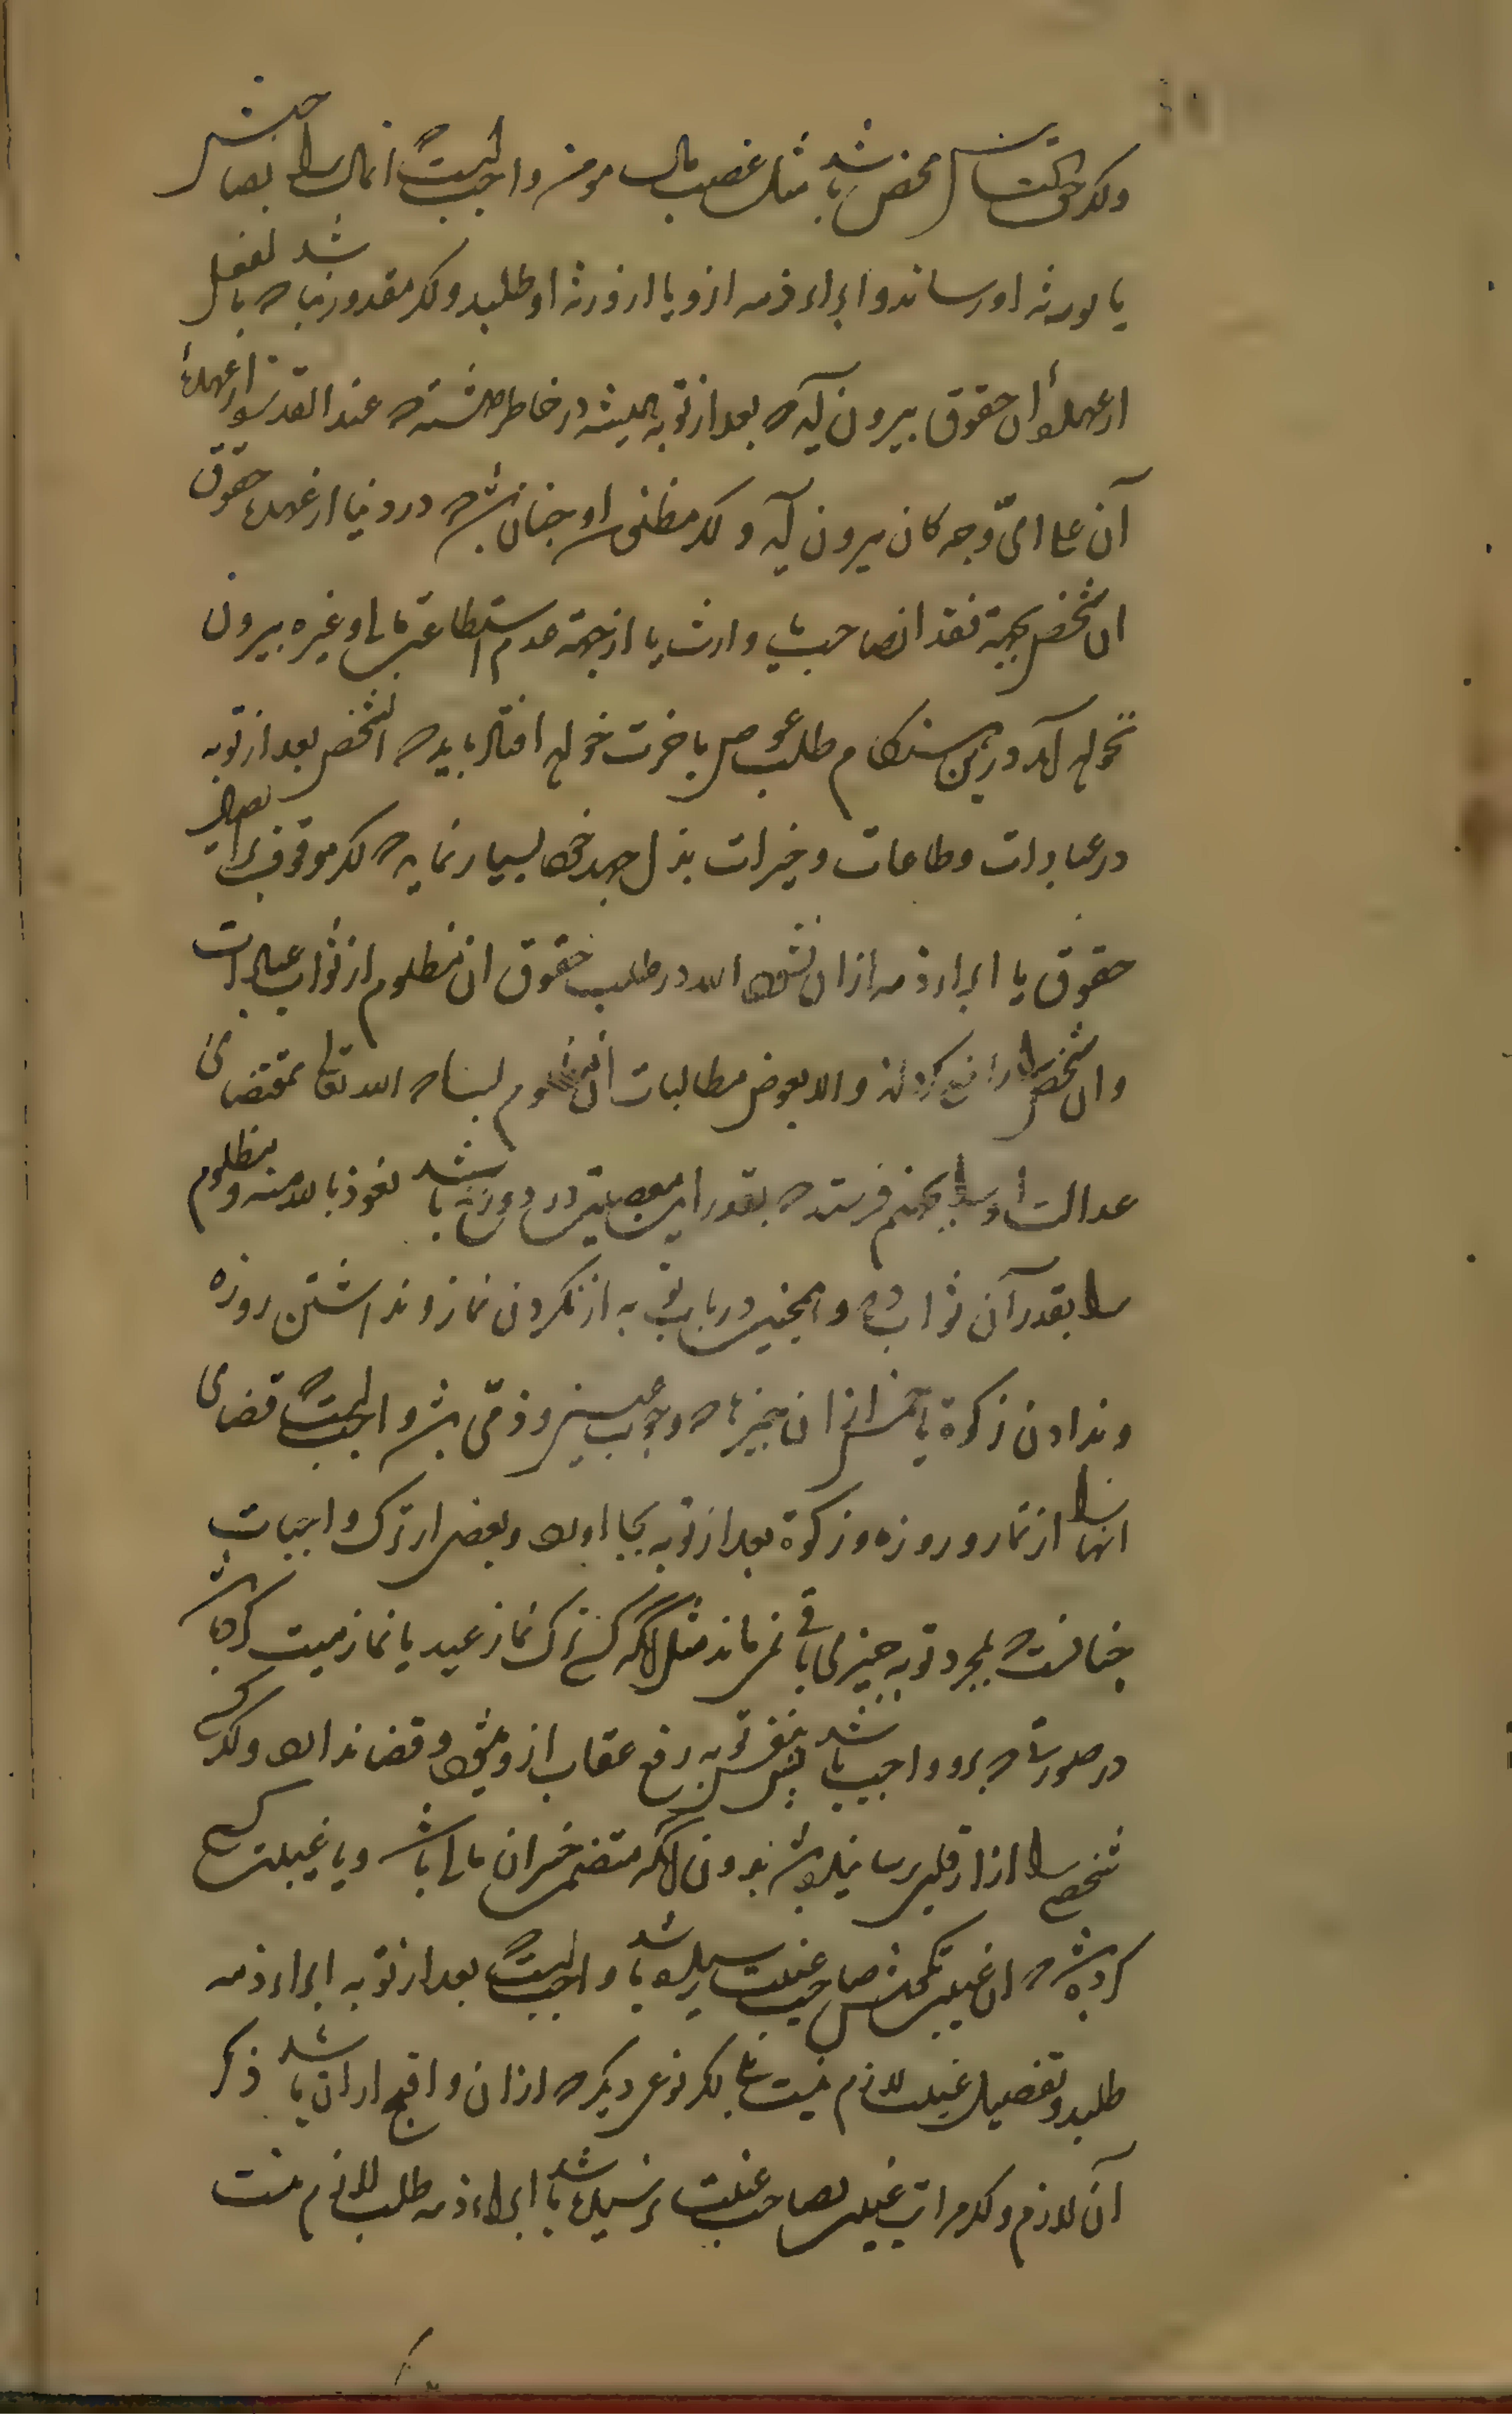 و اگر حق الناس محض باشد مثل غصب مال مومن واجبست که انمال را بصاحبش
یا بورثه او رساند و ابراء ذمه ازو یا از ورثه او طلبد و اگر مقدور نباشد که بالفعل
از عهدهٔ آن حقوق بیرون آید بعد از توبه همیشه در خاطر داشته که عند القدرة از عهدهٔ
آن علی ایّ وجه کان بیرون آید و اگر مظنه او چنان باشد که در دنیا از عهدهٔ حقوق
ان شخص بجهة فقدان صاحب یا وارث یا از جهة عدم استطاعت مالی و غیره بیرون
نخواهد آمد و درین هنگام طلب عوض باخرت خواهد افتاد باید که انشخص بعد از توبه
در عبادات و طاعات و خیرات بذل جهد خود بسیار نماید که اگر موقوف ایصال
حقوق یا ابراء ذمه ازان نشود الله در طلب حقوق ان مظلوم از ثواب عبادات
وان شخص را کردند والا بعوض مطالبات ان مظلوم بسا که الله تعالی بمقتضای
عدالت او را بجهنم فرستد که بقدر این معصیت در دوزخ باشد نعوذ بالله منه و مظلوم
را بقدر آن ثواب دهد و همچنین در باب توبه از نکردن نماز و نداشتن روزه
و ندادن زکوة یا خمس ازان چیزها که وجوب عینی و ذمّی باشد واجبست که قضای
انها را از نماز و روزه و زکوة بعد از توبه بجا اورد و بعضی از ترک واجبات
چنانست که بمجرد توبه چیزی باقی نمی‌ماند مثل آنکه کسی ترک نماز عید یا نماز میت کرده باشد
در صورتی که برو واجب باشد پس بنفس توبه رفع عقاب ازو میشود و قضا ندارد و اگر کسی
شخصی را ازار قلبی رسانیده باشد بدون آنکه متضمن خسران مالی باشد و یا غیبت کسی
کرده باشد که ان غیبت بگوش صاحب غیبت رسیده باشد واجبست که بعد از توبه ابراء ذمه
طلبد و تفصیل غیبت لازم نیست بلکه نوعی دیگر که ازان واقبح ازان باشد ذکر
آن لازم و اگر مراتب غیبت بصاحب غیبت نرسیده باشد ابراء ذمه طلب لازم نیست